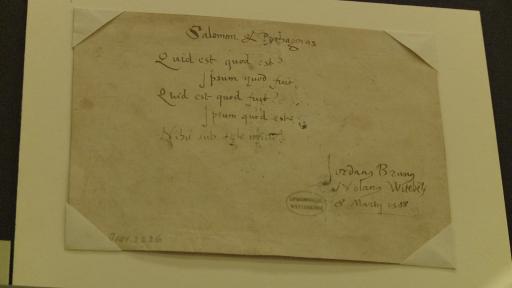 Salomon et Pythagoras
Quid est quod est?
Ipsum quod fuit.
Quid est quod fuit?
Ipsum quod est.
Nihil sub sole
Jordans Brun
Nolans Witeb
8 Martij 1588